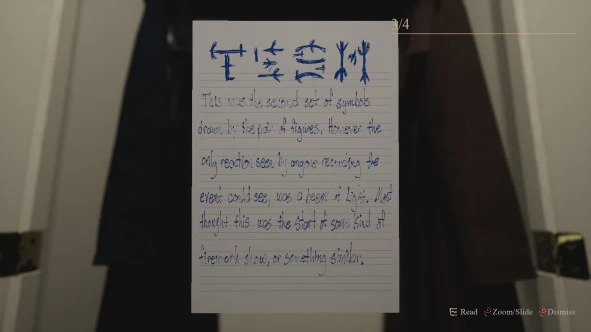 2/4
This was the second set of symbols
drawn by the pair of figures. However the
only reaction seen by anyone recording the
event could see, was a beem of Light. Most
thought this was the start of some kind of
firework show, or something similar.
Read Zoom/Slide Dismiss